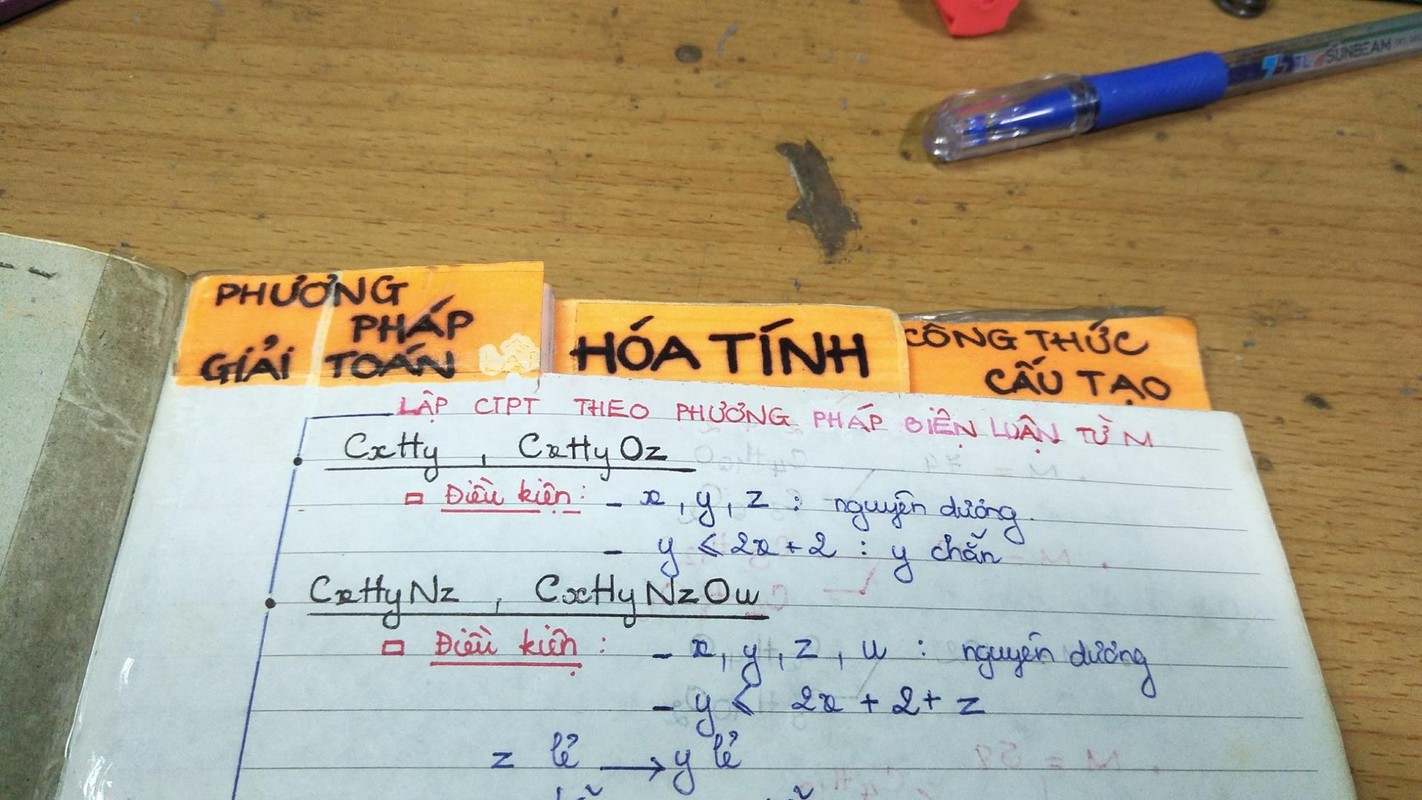 TL SUNBEAM
PHƯƠNG
PHÁP
GIẢI TOÁN
HÓA TÍNH
CÔNG THỨC
CẤU TẠO
LẬP CTPT THEO PHƯƠNG PHÁP BIỆN LUẬN TỪ M
CxHy , CxHyOz
Điều kiện: - x, y, z : nguyên dương.
- y ≤ 2x + 2 : y chẵn
CxHyNz , CxHyNzOu
Điều kiện : - x, y, z, u : nguyên dương
- y ≤ 2x + 2 + z
z lẻ → y lẻ